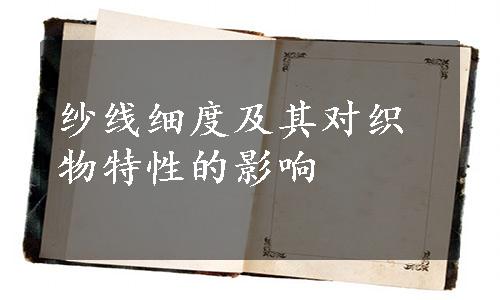 纱线细度及其对织
物特性的影响